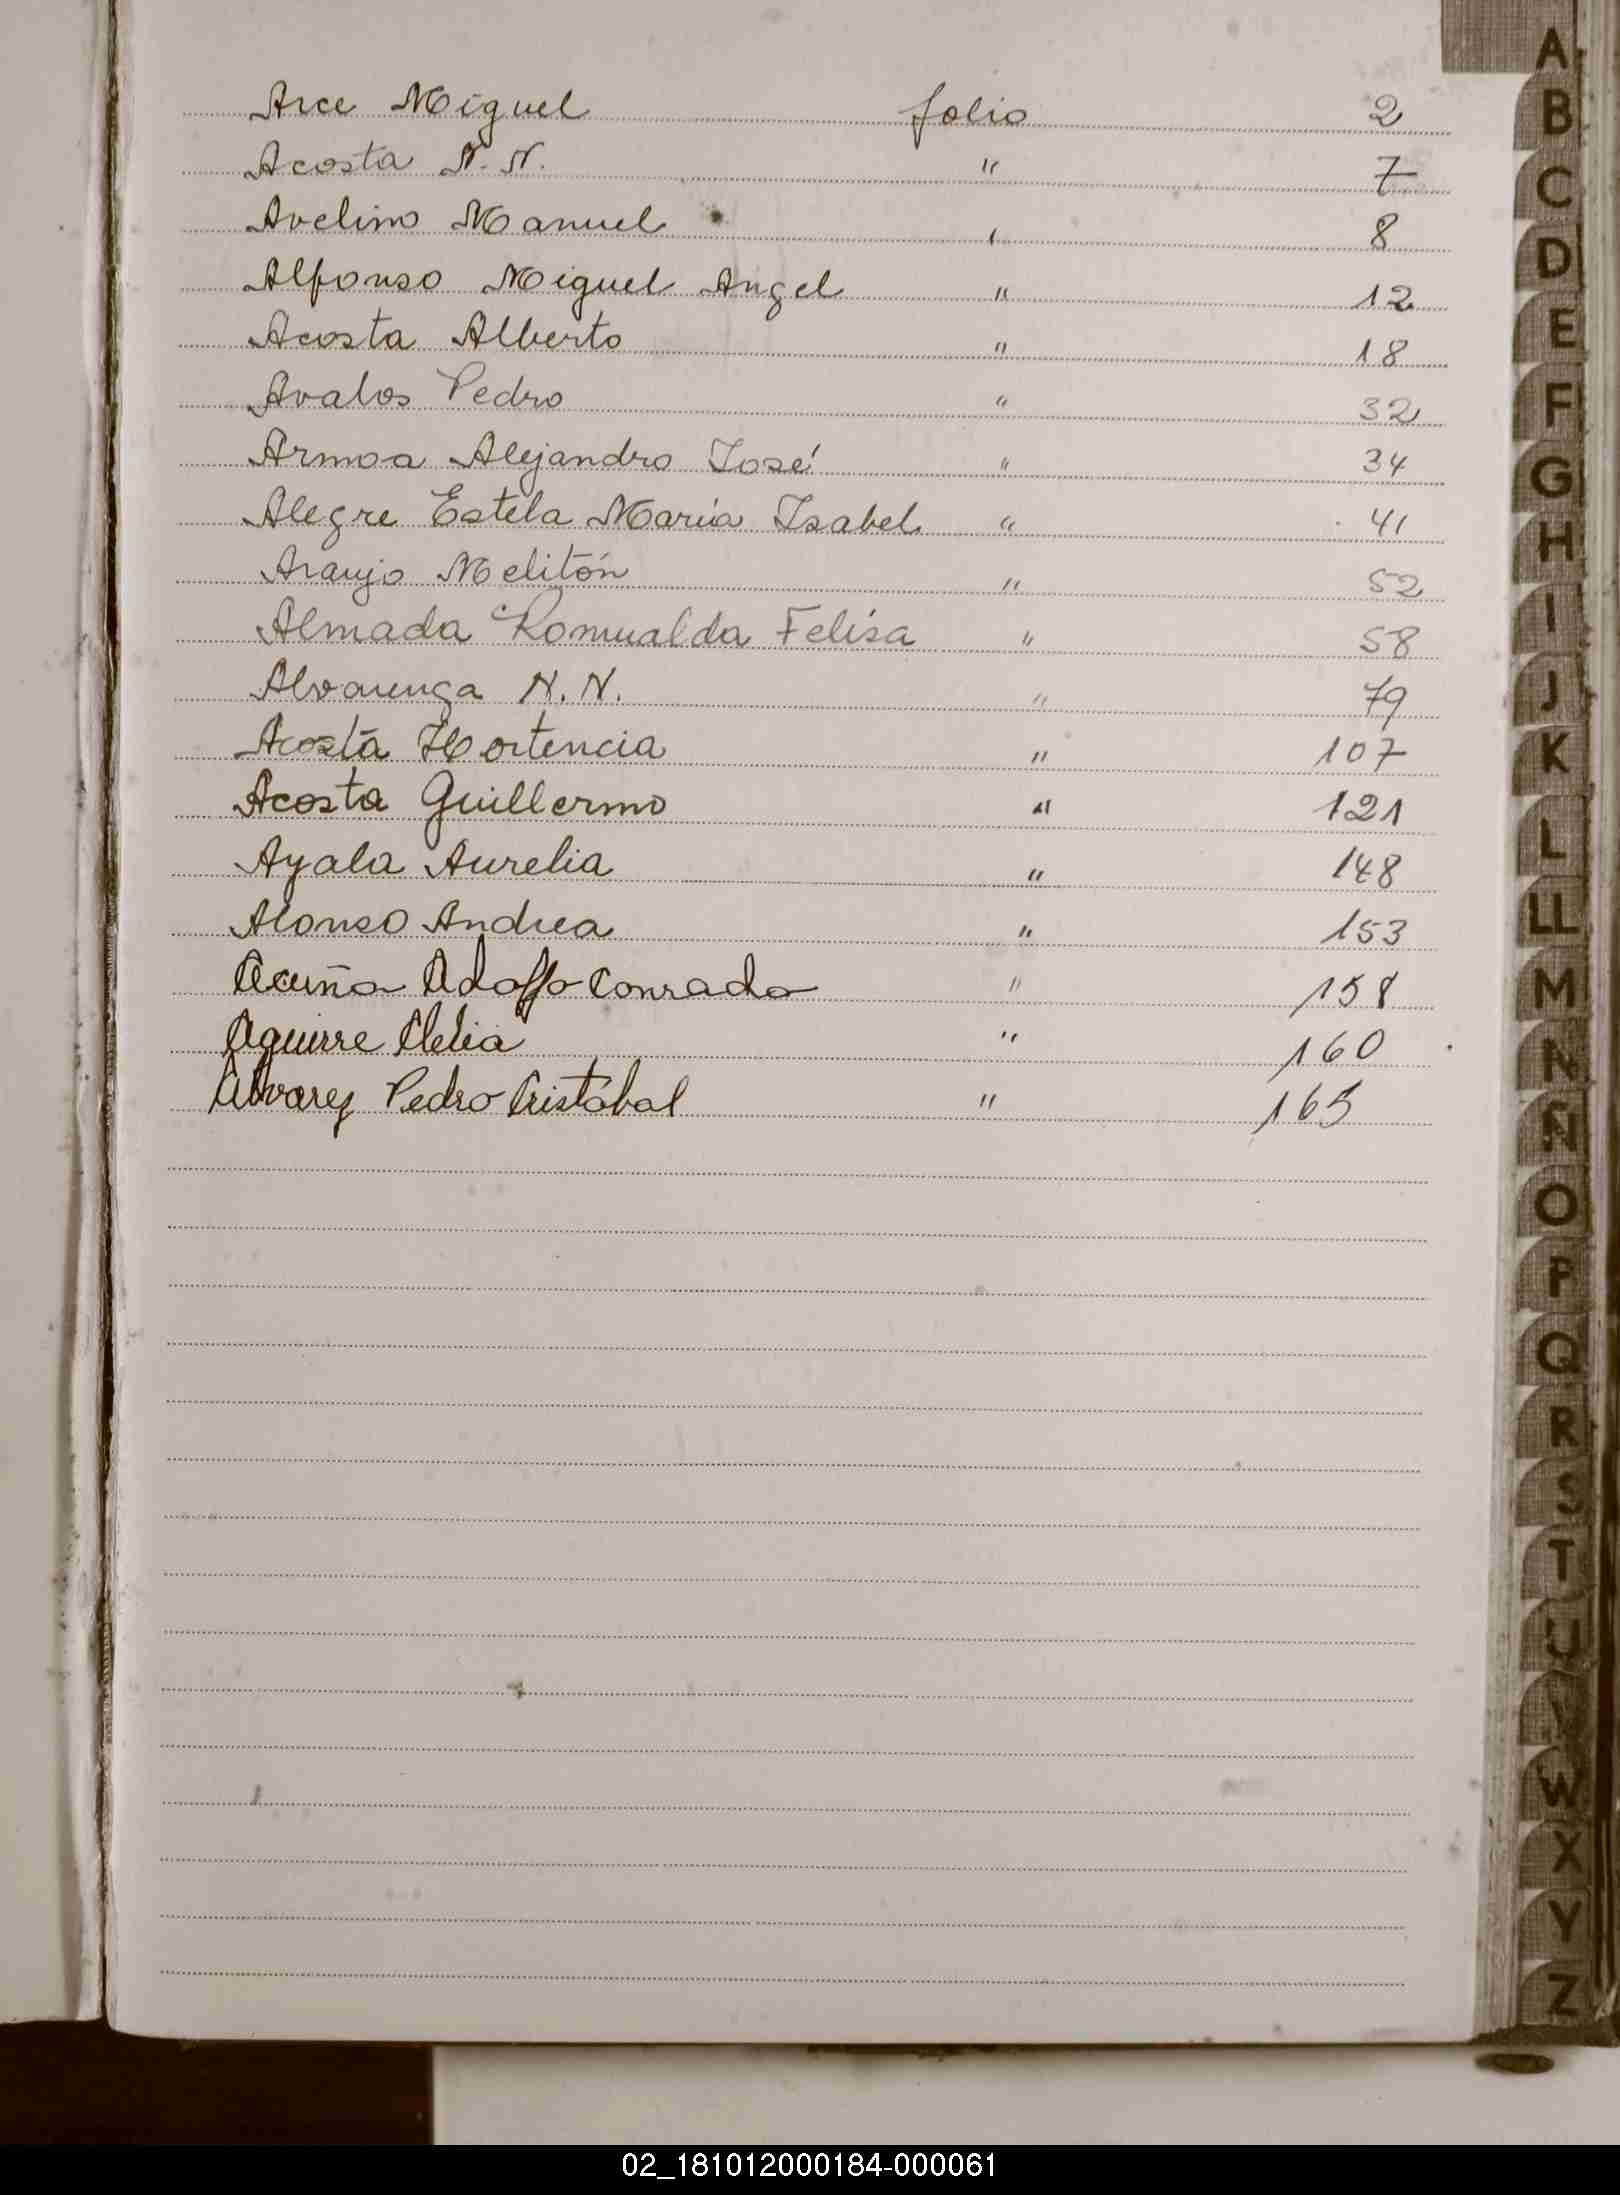 Arce Miguel folio 2
Acosta N. N. " 7
Avelino Manuel " 8
Alfonso Miguel Angel " 12
Acosta Alberto " 18
Avalos Pedro " 32
Armoa Alejandro José " 34
Alegre Estela María Isabel " 41
Araujo Melitón " 52
Almada Romualda Felisa " 58
Alvarenga N. N. " 79
Acosta Hortencia " 107
Acosta Guillermo " 121
Ayala Aurelia " 148
Alonso Andrea " 153
Acuña Adolfo Conrado " 158
Aguirre Clelia " 160
Alvarez Pedro Cristóbal " 165
A
B
C
D
E
F
G
H
I
J
K
L
LL
M
N
Ñ
O
P
Q
R
S
T
U
V
W
X
Y
Z
02_181012000184-000061